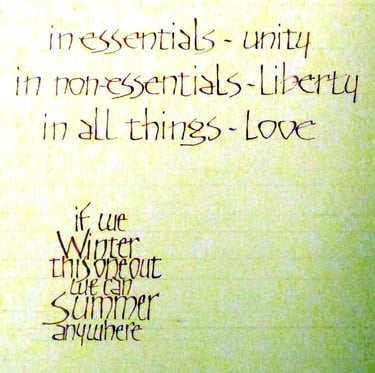 in essentials - unity
in non-essentials - Liberty
in all things - Love
if we
Winter
this one out
we can
Summer
anywhere